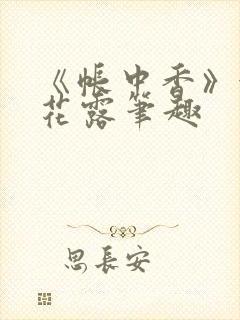 《帐中香》
花露笔趣
思长安